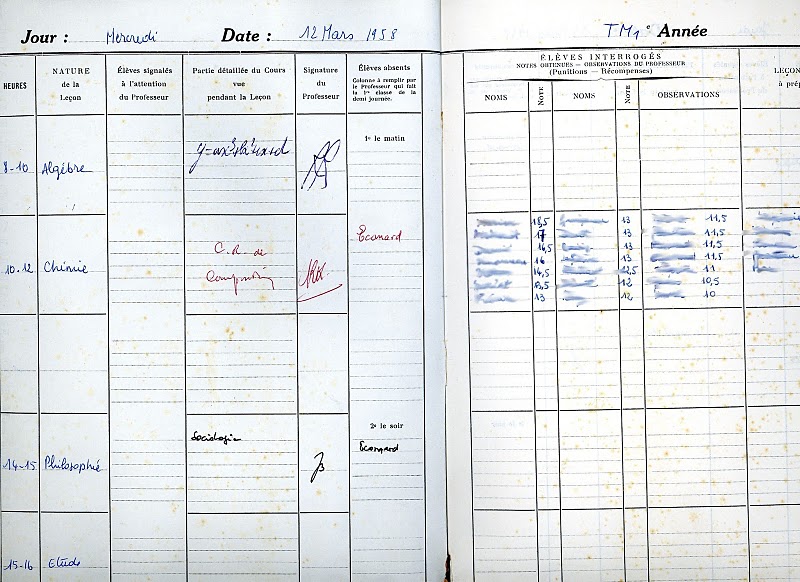 Jour : Mercredi Date : 12 Mars 1958
HEURES
NATURE
de la
Leçon
Élèves signalés
à l'attention
du Professeur
Partie détaillée du Cours
vue
pendant la Leçon
Signature
du
Professeur
Élèves absents
Colonne à remplir par
le Professeur qui fait
la 1re classe de la
demi journée.
8-10 Algèbre y=ax³+bx²+cx+d
1e le matin
10-12 Chimie
C.R. de
Composition
Econard
2e le soir
14-15 Philosophie Sociologie Econard
15-16 Etude
TM1° Année
ÉLÈVES INTERROGÉS
NOTES OBTENUES — OBSERVATIONS DU PROFESSEUR
(Punitions — Récompenses)
NOMS NOTE NOMS NOTE OBSERVATIONS
LEÇON
à pré
18,5 13 11,5
17 13 11,5
16,5 13 11,5
16 13 11,5
14,5 12,5 11
13,5 12 10,5
13 12 10